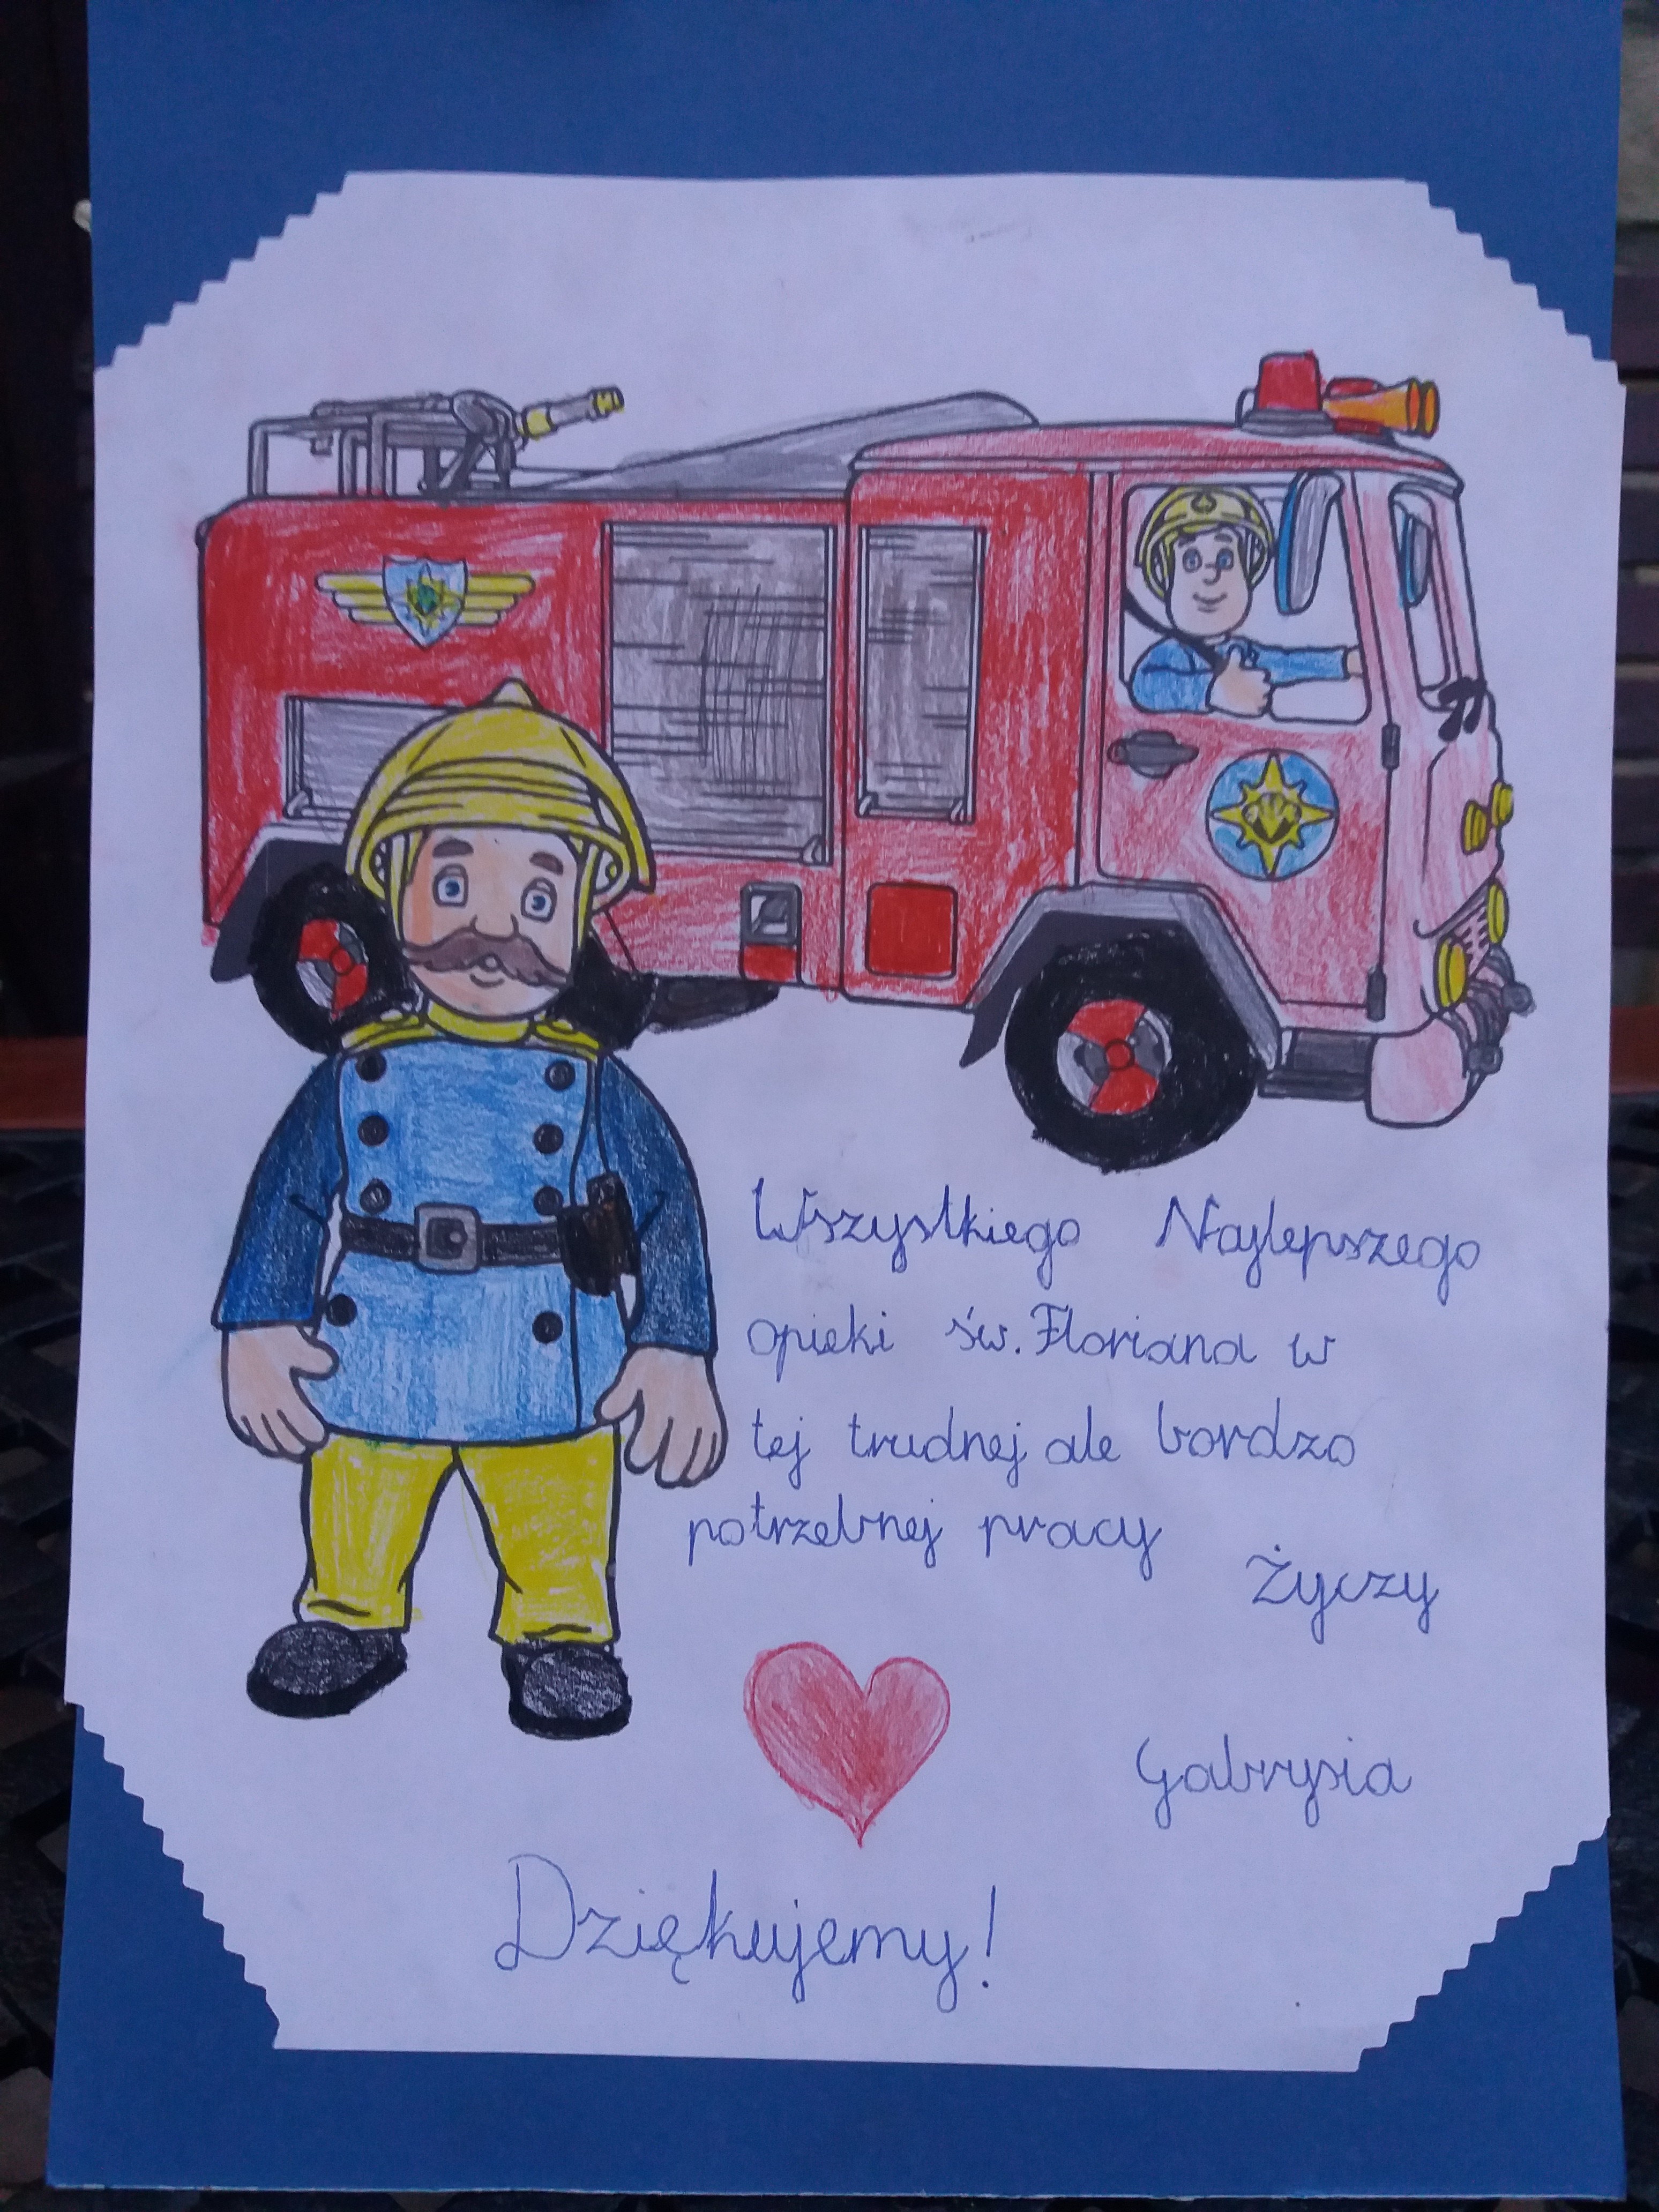 Wszystkiego Najlepszego
opieki św. Floriana w
tej trudnej ale bardzo
potrzebnej pracy
Życzy
Gabrysia
Dziękujemy!